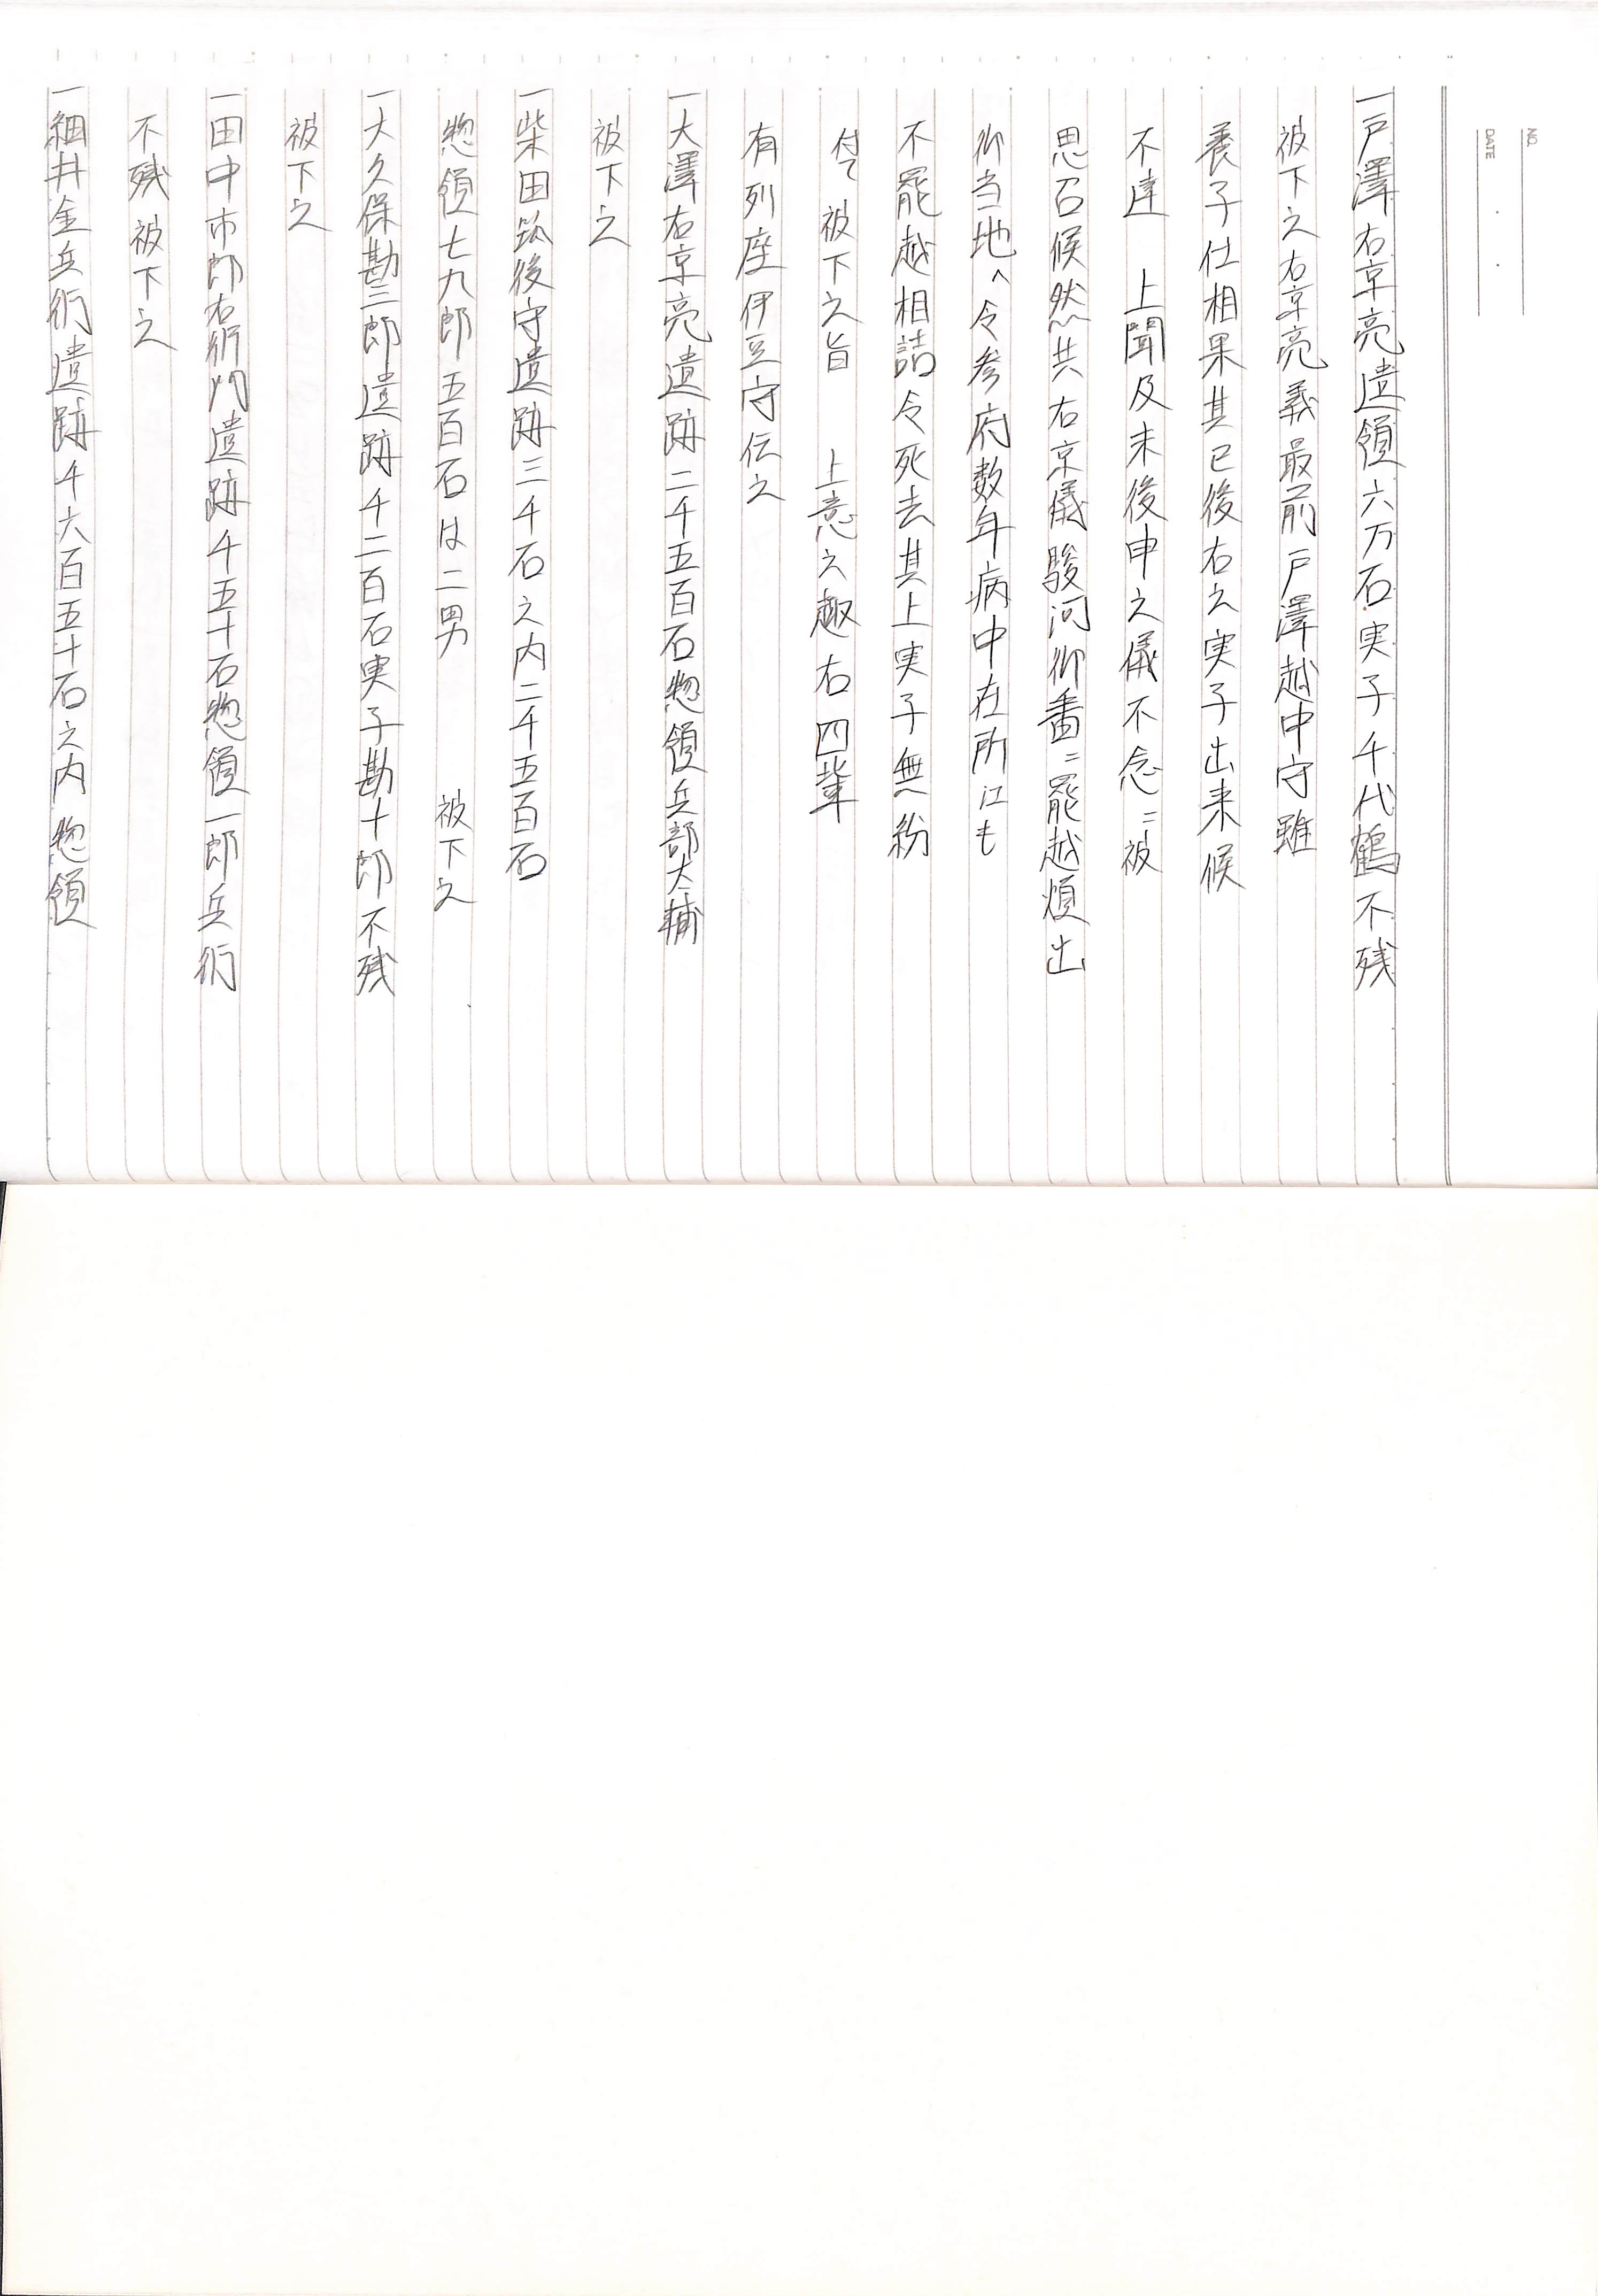 NO.
DATE
一戸澤右京亮遺領六万石実子千代鶴不残
被下之右京亮義最前戸澤越中守雖
養子仕相果其已後右之実子出来候
不達　上聞及末後申之儀不念ニ被
思召候然共右京儀駿河御番ニ罷越煩出
御当地へ令参府数年病中在所江も
不罷越相詰令死去其上実子無紛
付て被下之旨　上意之趣右四輩
有列座伊豆守伝之
一大澤右京亮遺跡二千五百石惣領兵部太輔
被下之
一柴田筑後守遺跡三千石之内二千五百石
惣領七九郎五百石は二男　被下之
一大久保勘三郎遺跡千二百石実子勘十郎不残
被下之
一田中市郎右衛門遺跡千五十石惣領一郎兵衛
不残被下之
一細井金兵衛遺跡千六百五十石之内惣領